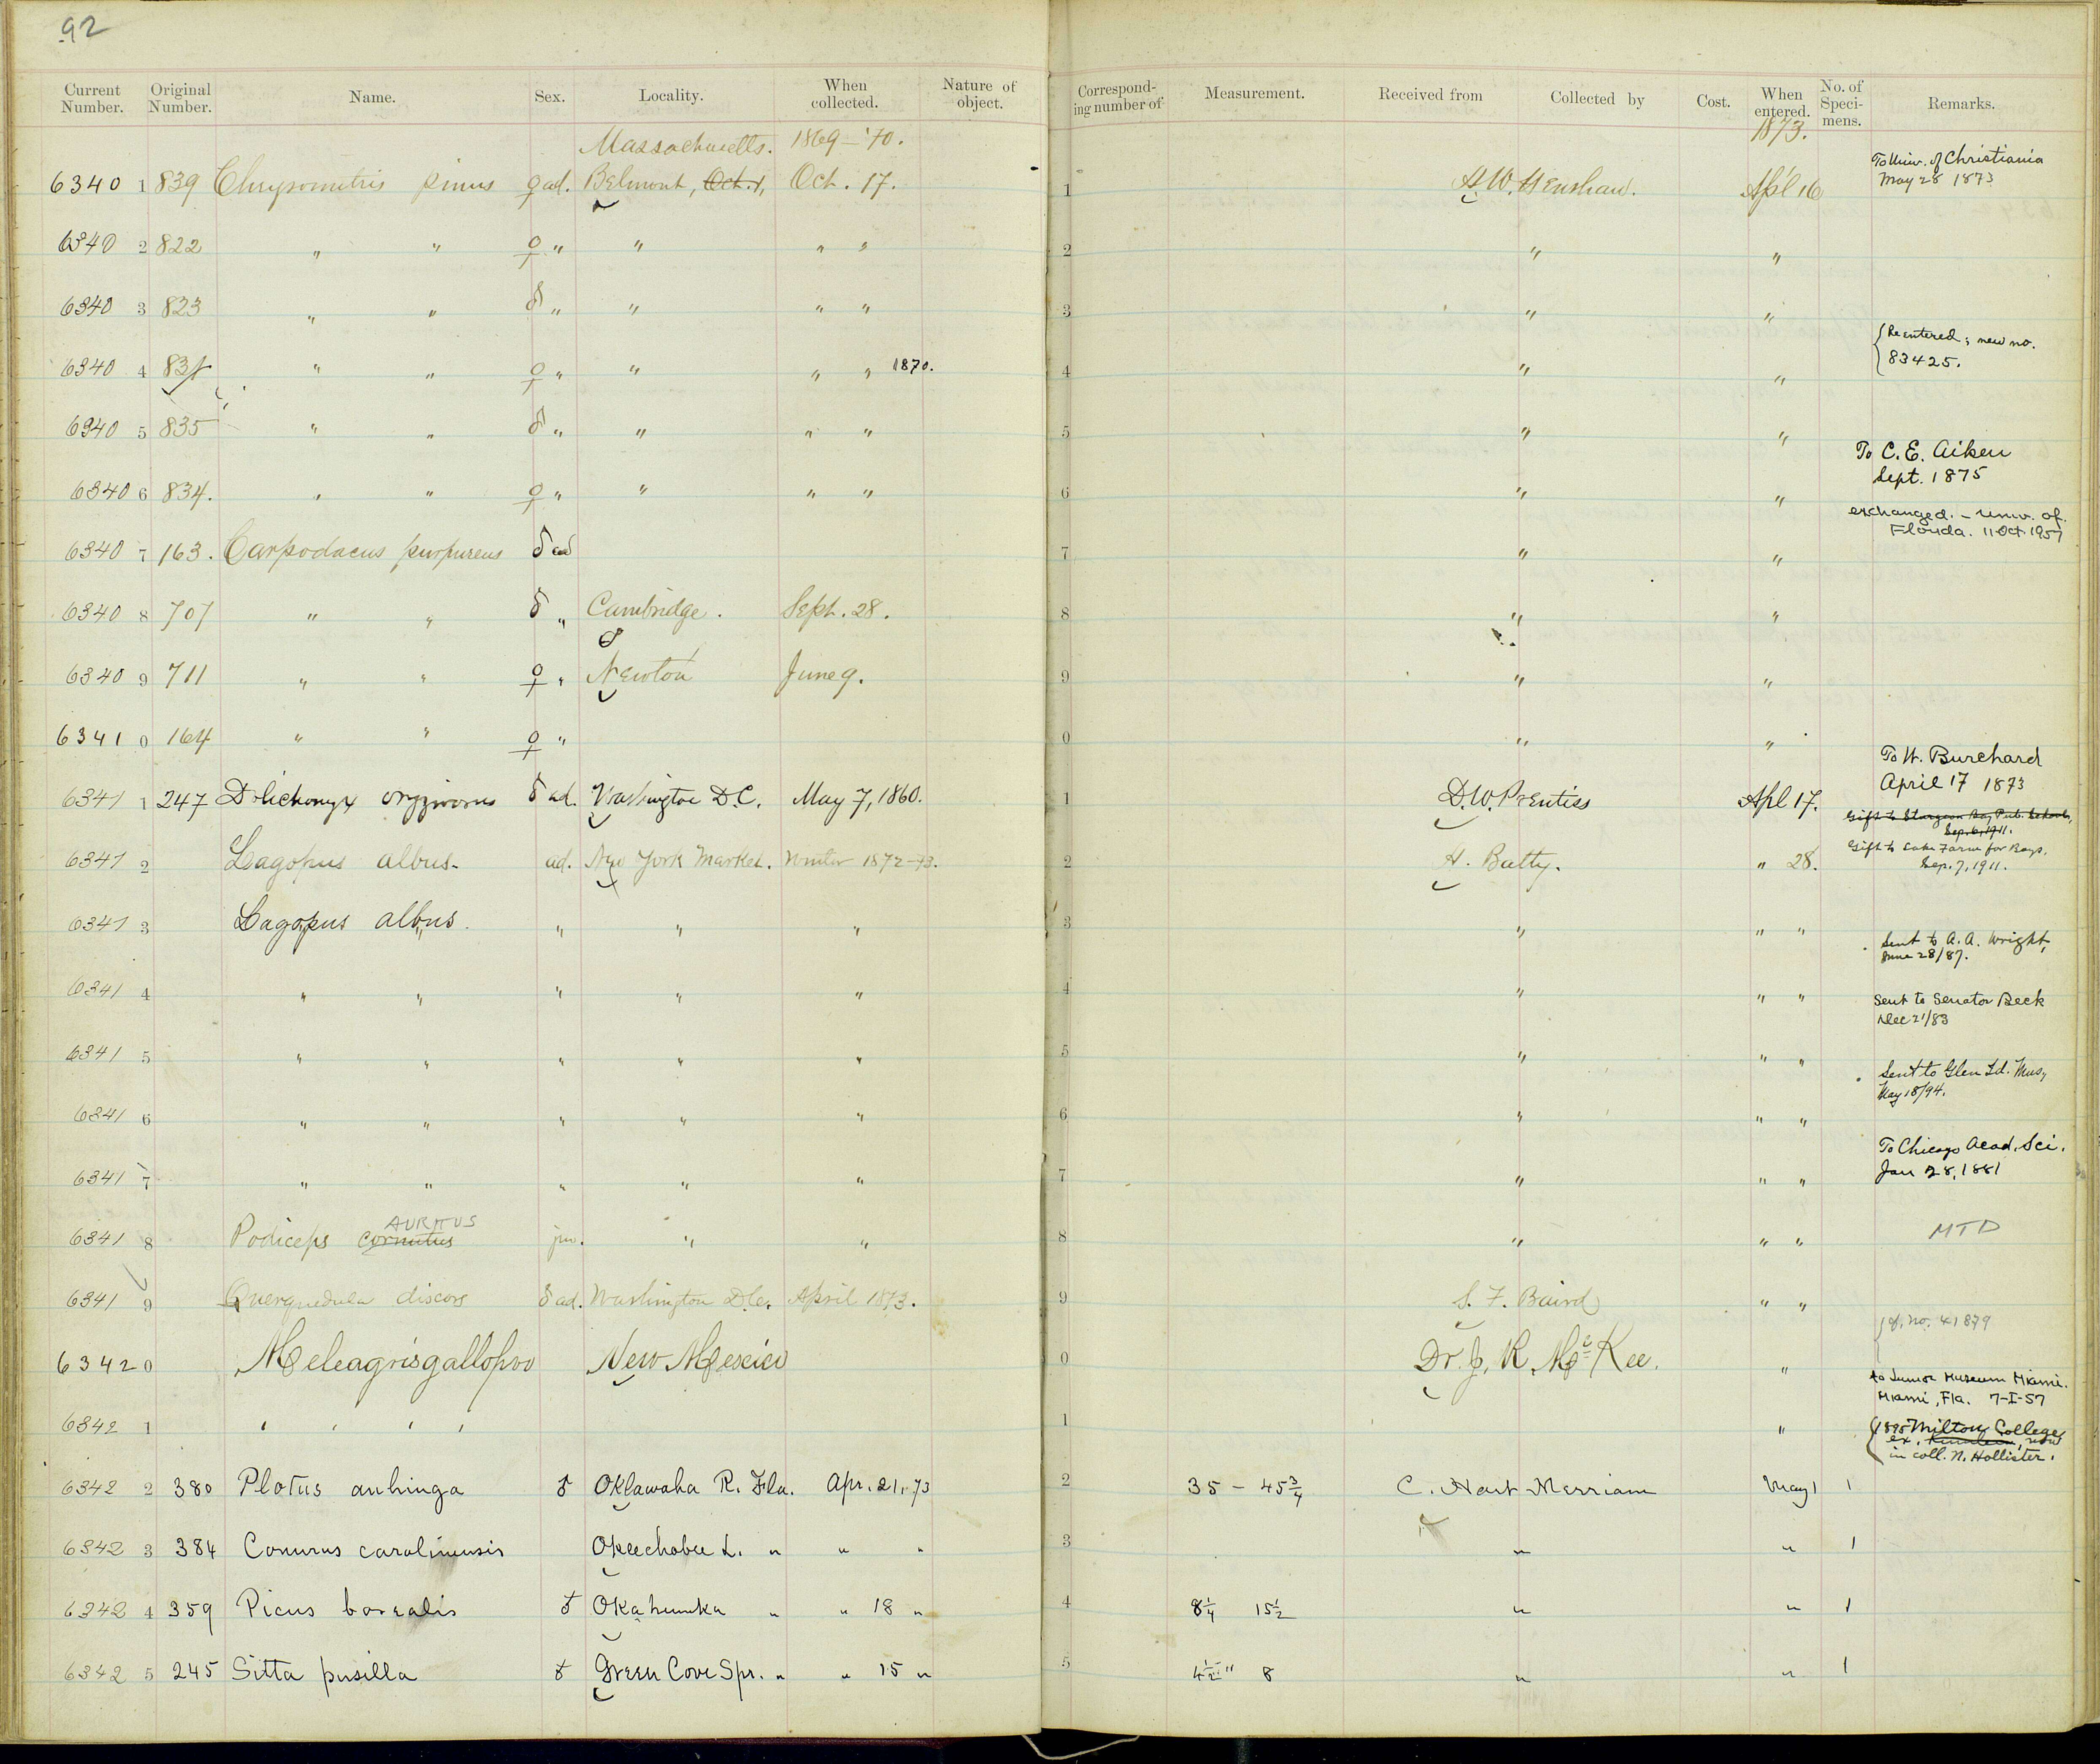 92
Current Number. Original Number. Name. Sex. Locality. When collected. Nature of object. Corresponding number of Measurement. Received from Collected by Cost. When entered. No. of Specimens. Remarks.
Massachusetts. 1869–'70. 1873.
6340 1 839 Chrysomitris pinus ♀ ad. Belmont, Oct. 1, Oct. 17. 1 H. W. Henshaw. Apl 16 To Univ. of Christiania May 28 1873
6340 2 822 " " ♀ " " " " 2 " "
6340 3 823 " " ♂ " " " " 3 " "
6340 4 831 " " ♀ " " " " 1870. 4 " " {Reentered; new no. 83425.
6340 5 835 " " ♂ " " " " 5 " "
6340 6 834. " " ♀ " " " " 6 " " To C. E. Aiken Sept. 1875
6340 7 163. Carpodacus purpureus ♂ ad 7 " " exchanged. – Univ. of Florida. 11 Oct. 1957
6340 8 707 " " ♂ " Cambridge. Sept. 28. 8 " "
6340 9 711 " " ♀ " Newton June 9. 9 " "
6341 0 164 " " ♀ " 0 " "
6341 1 247 Dolichonyx oryzivorus ♂ ad. Washington D.C. May 7, 1860. 1 D. W. Prentiss Apl 17. To H. Burchard April 17 1873
Gift to Sturgeon Bay Pub. Schools, Sep. 6, 1911.
6341 2 Lagopus albus. ad. New York Market. Winter 1872–73. 2 H. Batty. " 28. Gift to Lake Farm for Boys. Sep. 7, 1911.
6341 3 Lagopus albus. " " " 3 " " " Sent to A. A. Wright, June 28/87.
6341 4 " " " " " 4 " " " Sent to Senator Beck Dec 21/83
6341 5 " " " " " 5 " " "
6341 6 " " " " " 6 " " " Sent to Glen Id. Mus, May 18/94.
6341 7 " " " " " 7 " " " To Chicago Acad. Sci. Jan 28, 1881
AURITUS
6341 8 Podiceps cornutus juv. " " 8 " " " MTD
6341 9 Querquedula discors ♂ ad. Washington D.C. April 1873. 9 S. F. Baird " "
{ No. 41879
6342 0 Meleagris gallopavo New Mexico 0 Dr. J. R. McKee. "
to Junior Museum Miami. Miami, Fla. 7-I-57
6342 1 " " " " 1 " {1895 Milton College, now in coll. N. Hollister.
6342 2 380 Plotus anhinga ♂ Oklawaha R. Fla. Apr. 21, 73 2 35 – 45¾ C. Hart Merriam May 1 1
6342 3 384 Conurus carolinensis Okeechobee L. " " " 3 " " 1
6342 4 359 Picus borealis ♂ Okahumka " " 18 " 4 8¼ 15½ " " 1
6342 5 245 Sitta pusilla ♂ Green Cove Spr. " " 15 " 5 4½" 8 " " 1